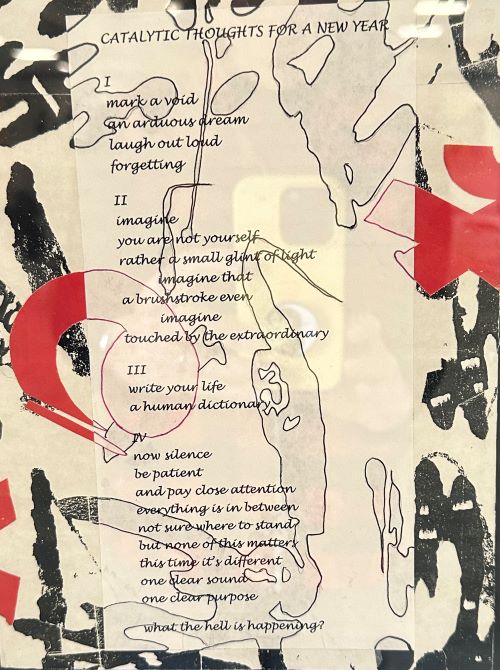 CATALYTIC THOUGHTS FOR A NEW YEAR
I
mark a void
an arduous dream
laugh out loud
forgetting
II
imagine
you are not yourself
rather a small glint of light
imagine that
a brushstroke even
imagine
touched by the extraordinary
III
write your life
a human dictionary
IV
now silence
be patient
and pay close attention
everything is in between
not sure where to stand
but none of this matters
this time it's different
one clear sound
one clear purpose
what the hell is happening?